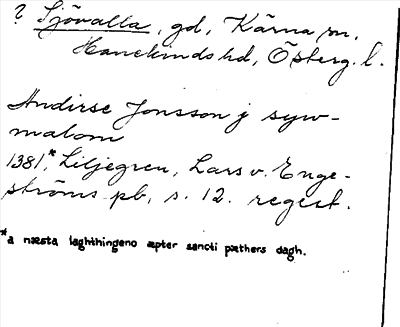 ? Sjövalla, gd, Kärna sn,
Hanekinds hd, Österg. l.
Andirse Jonsson j syw-
malom
1381,* Liljegren, Lars v. Enge-
ströms pb, s. 12. regest.
*a næsta laghthingeno æpter sancti pæthers dagh.